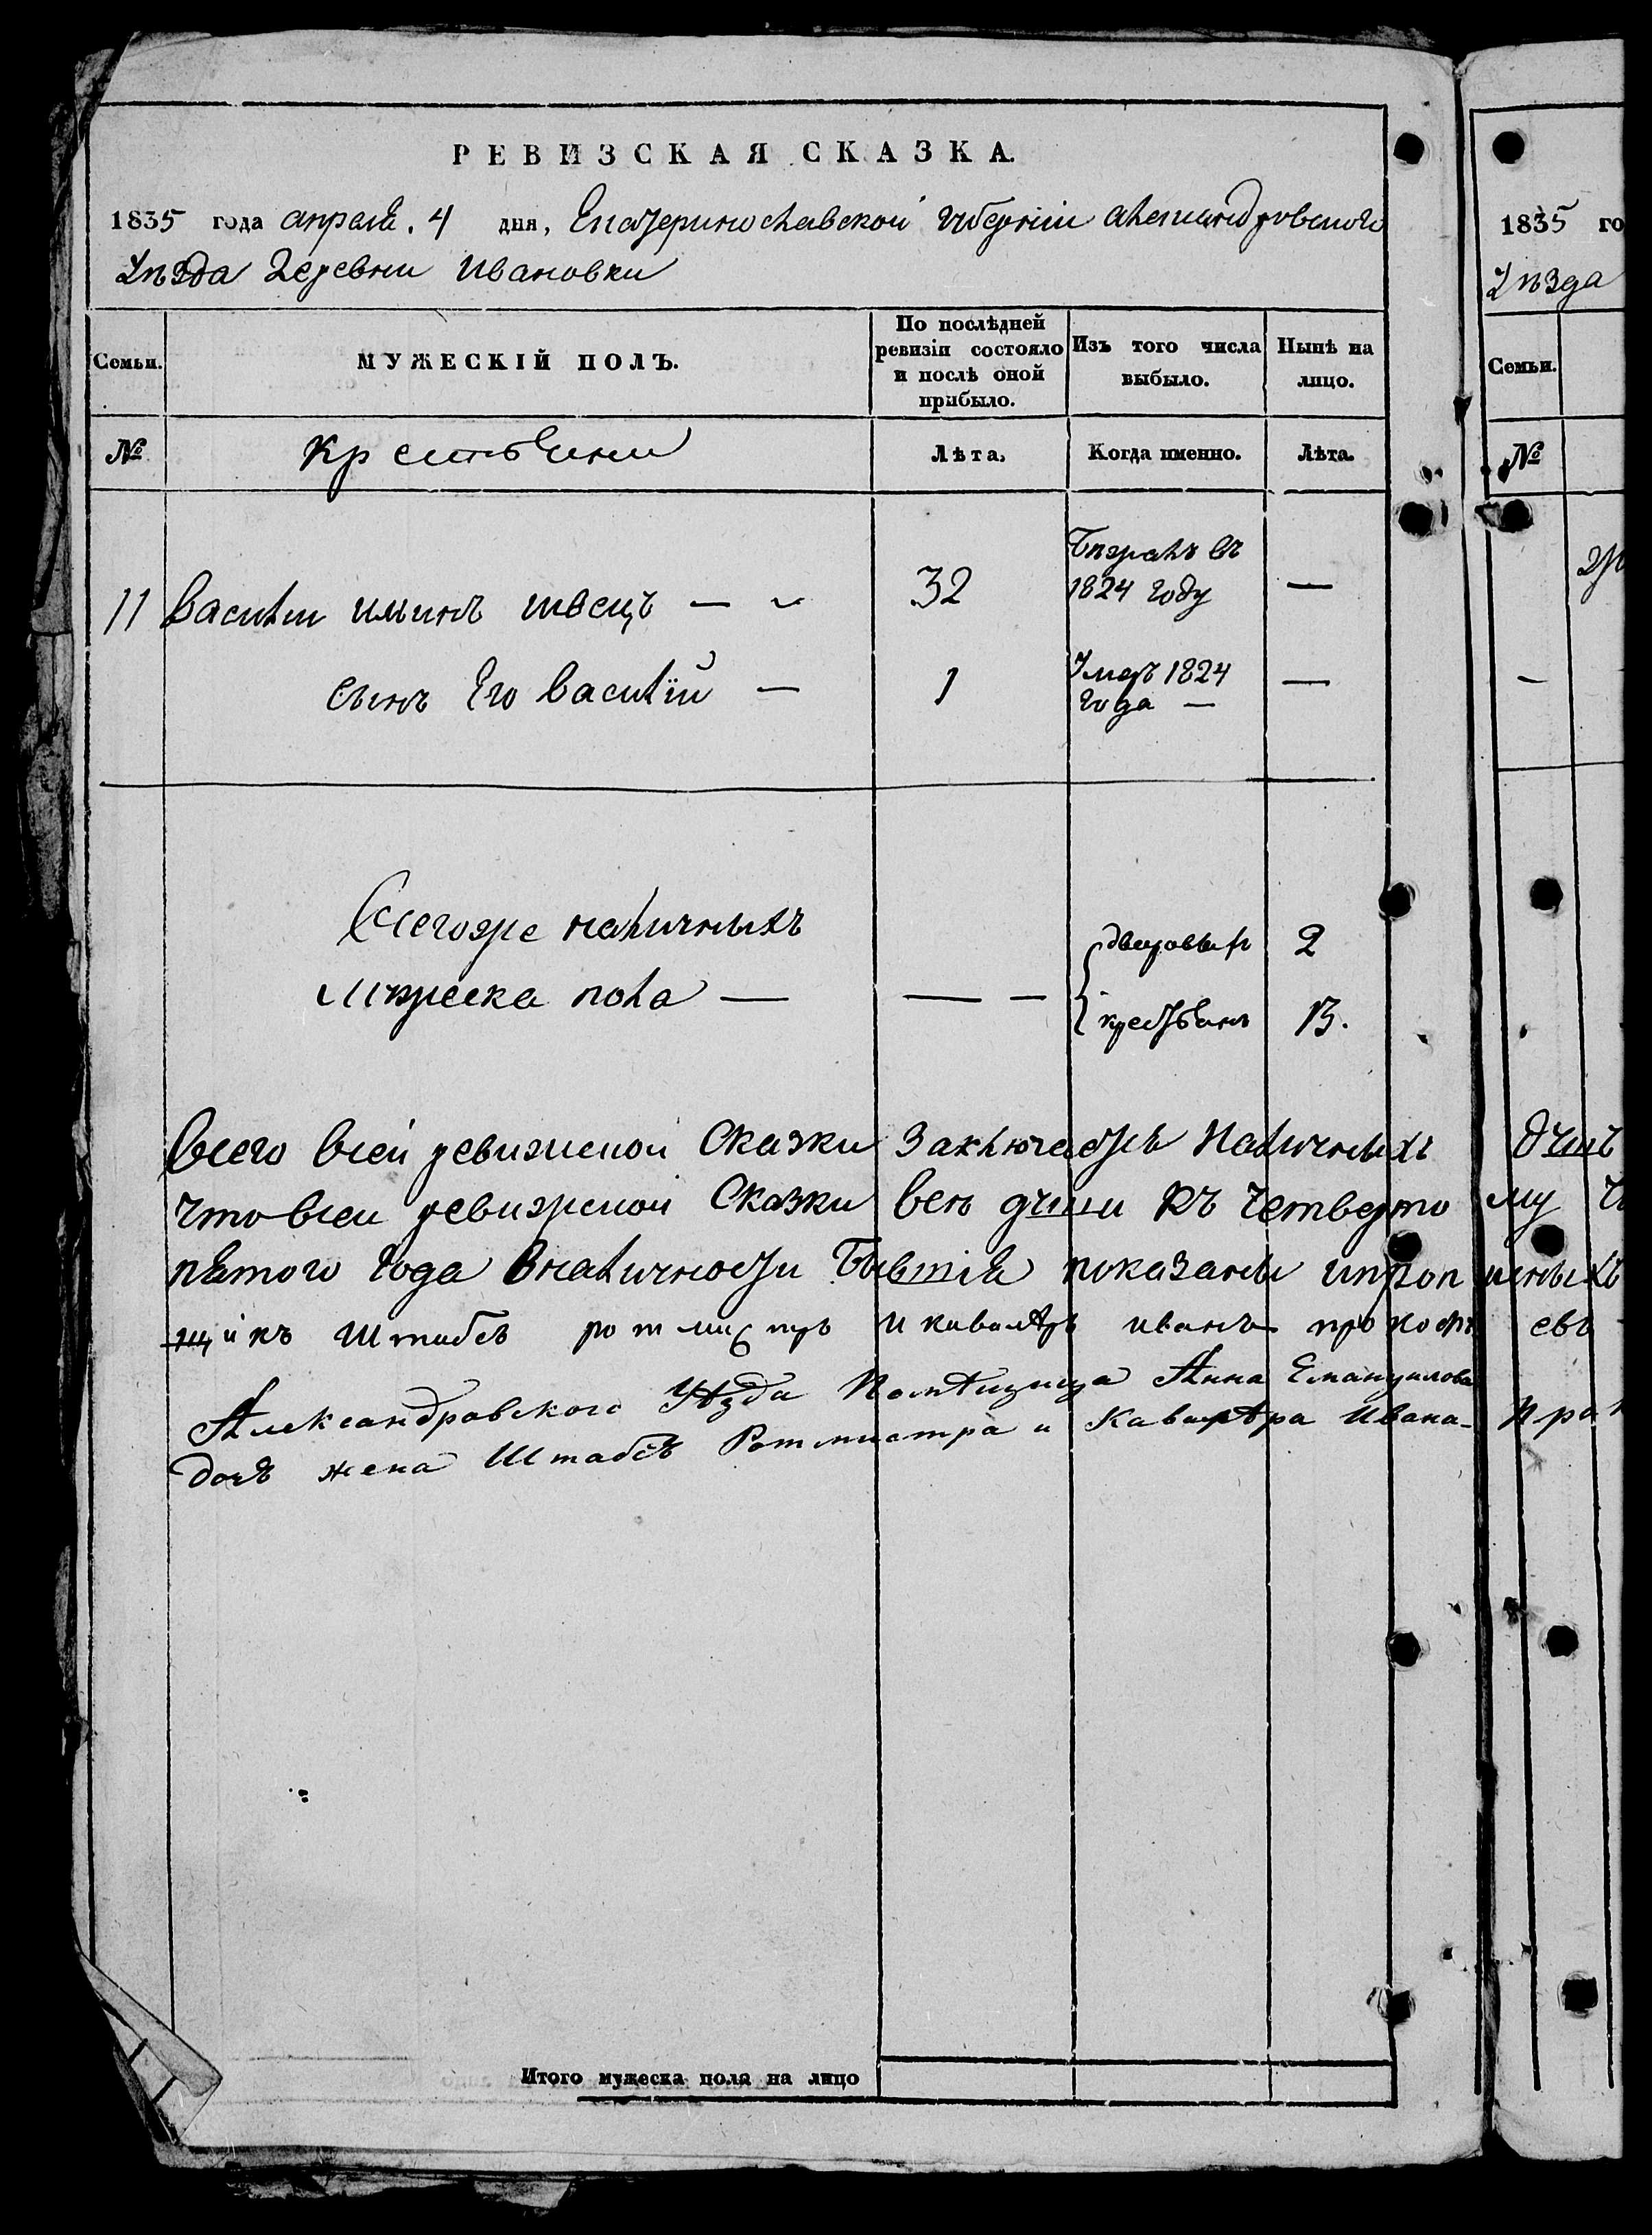 РЕВИЗСКАЯ СКАЗКА.
1835 года апреля. 4 дня, Екатеринославской губернии александровского
уѣзда Деревни Ивановки
Семьи.
МУЖЕСКІЙ ПОЛЪ.
По послѣдней ревизіи состояло и послѣ оной прибыло.
Изъ того числа выбыло.
Нынѣ на лицо.
№
крестьяни
Лѣта.
Когда именно.
Лѣта.
Бѣжалъ въ
11 Василии ильинъ швецъ — 32 1824 году —
сынъ Его Василїй — 1 Умеръ 1824 —
года —
наличныхъ
дворовыхъ 2
мужеска пола — — — крестьянъ 13.
Всего всей ревижской Сказки заключается Наличныхъ
что всеи ревижской Сказки всѣ души къ четверто
пятого года Вналичности Бывшія показаны ипроп
щикъ Штабсъ ротмистръ и кавалѣръ иванъ прокофь
Александровского Уѣзда Помѣщица Анна Емануилова
дочь жена Штабсъ Ротмистра и Кавалѣра Ивана
Итого мужеска пола на лицо
1835 го
уѣзда
Семьи.
№
—
душъ
му
ныхъ
евъ